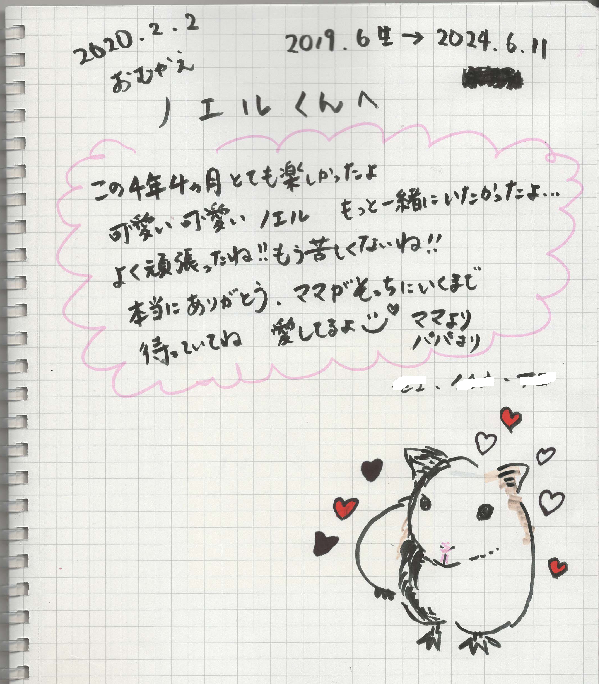 2020.2.2
おむかえ
2019.6生→2024.6.11
ノエルくんへ
この4年4ヵ月とても楽しかったよ
可愛い可愛いノエル もっと一緒にいたかったよ...
よく頑張ったね!!もう苦しくないね!!
本当にありがとう、ママがそっちにいくまで
待っていてね 愛してるよ
ママより
パパより